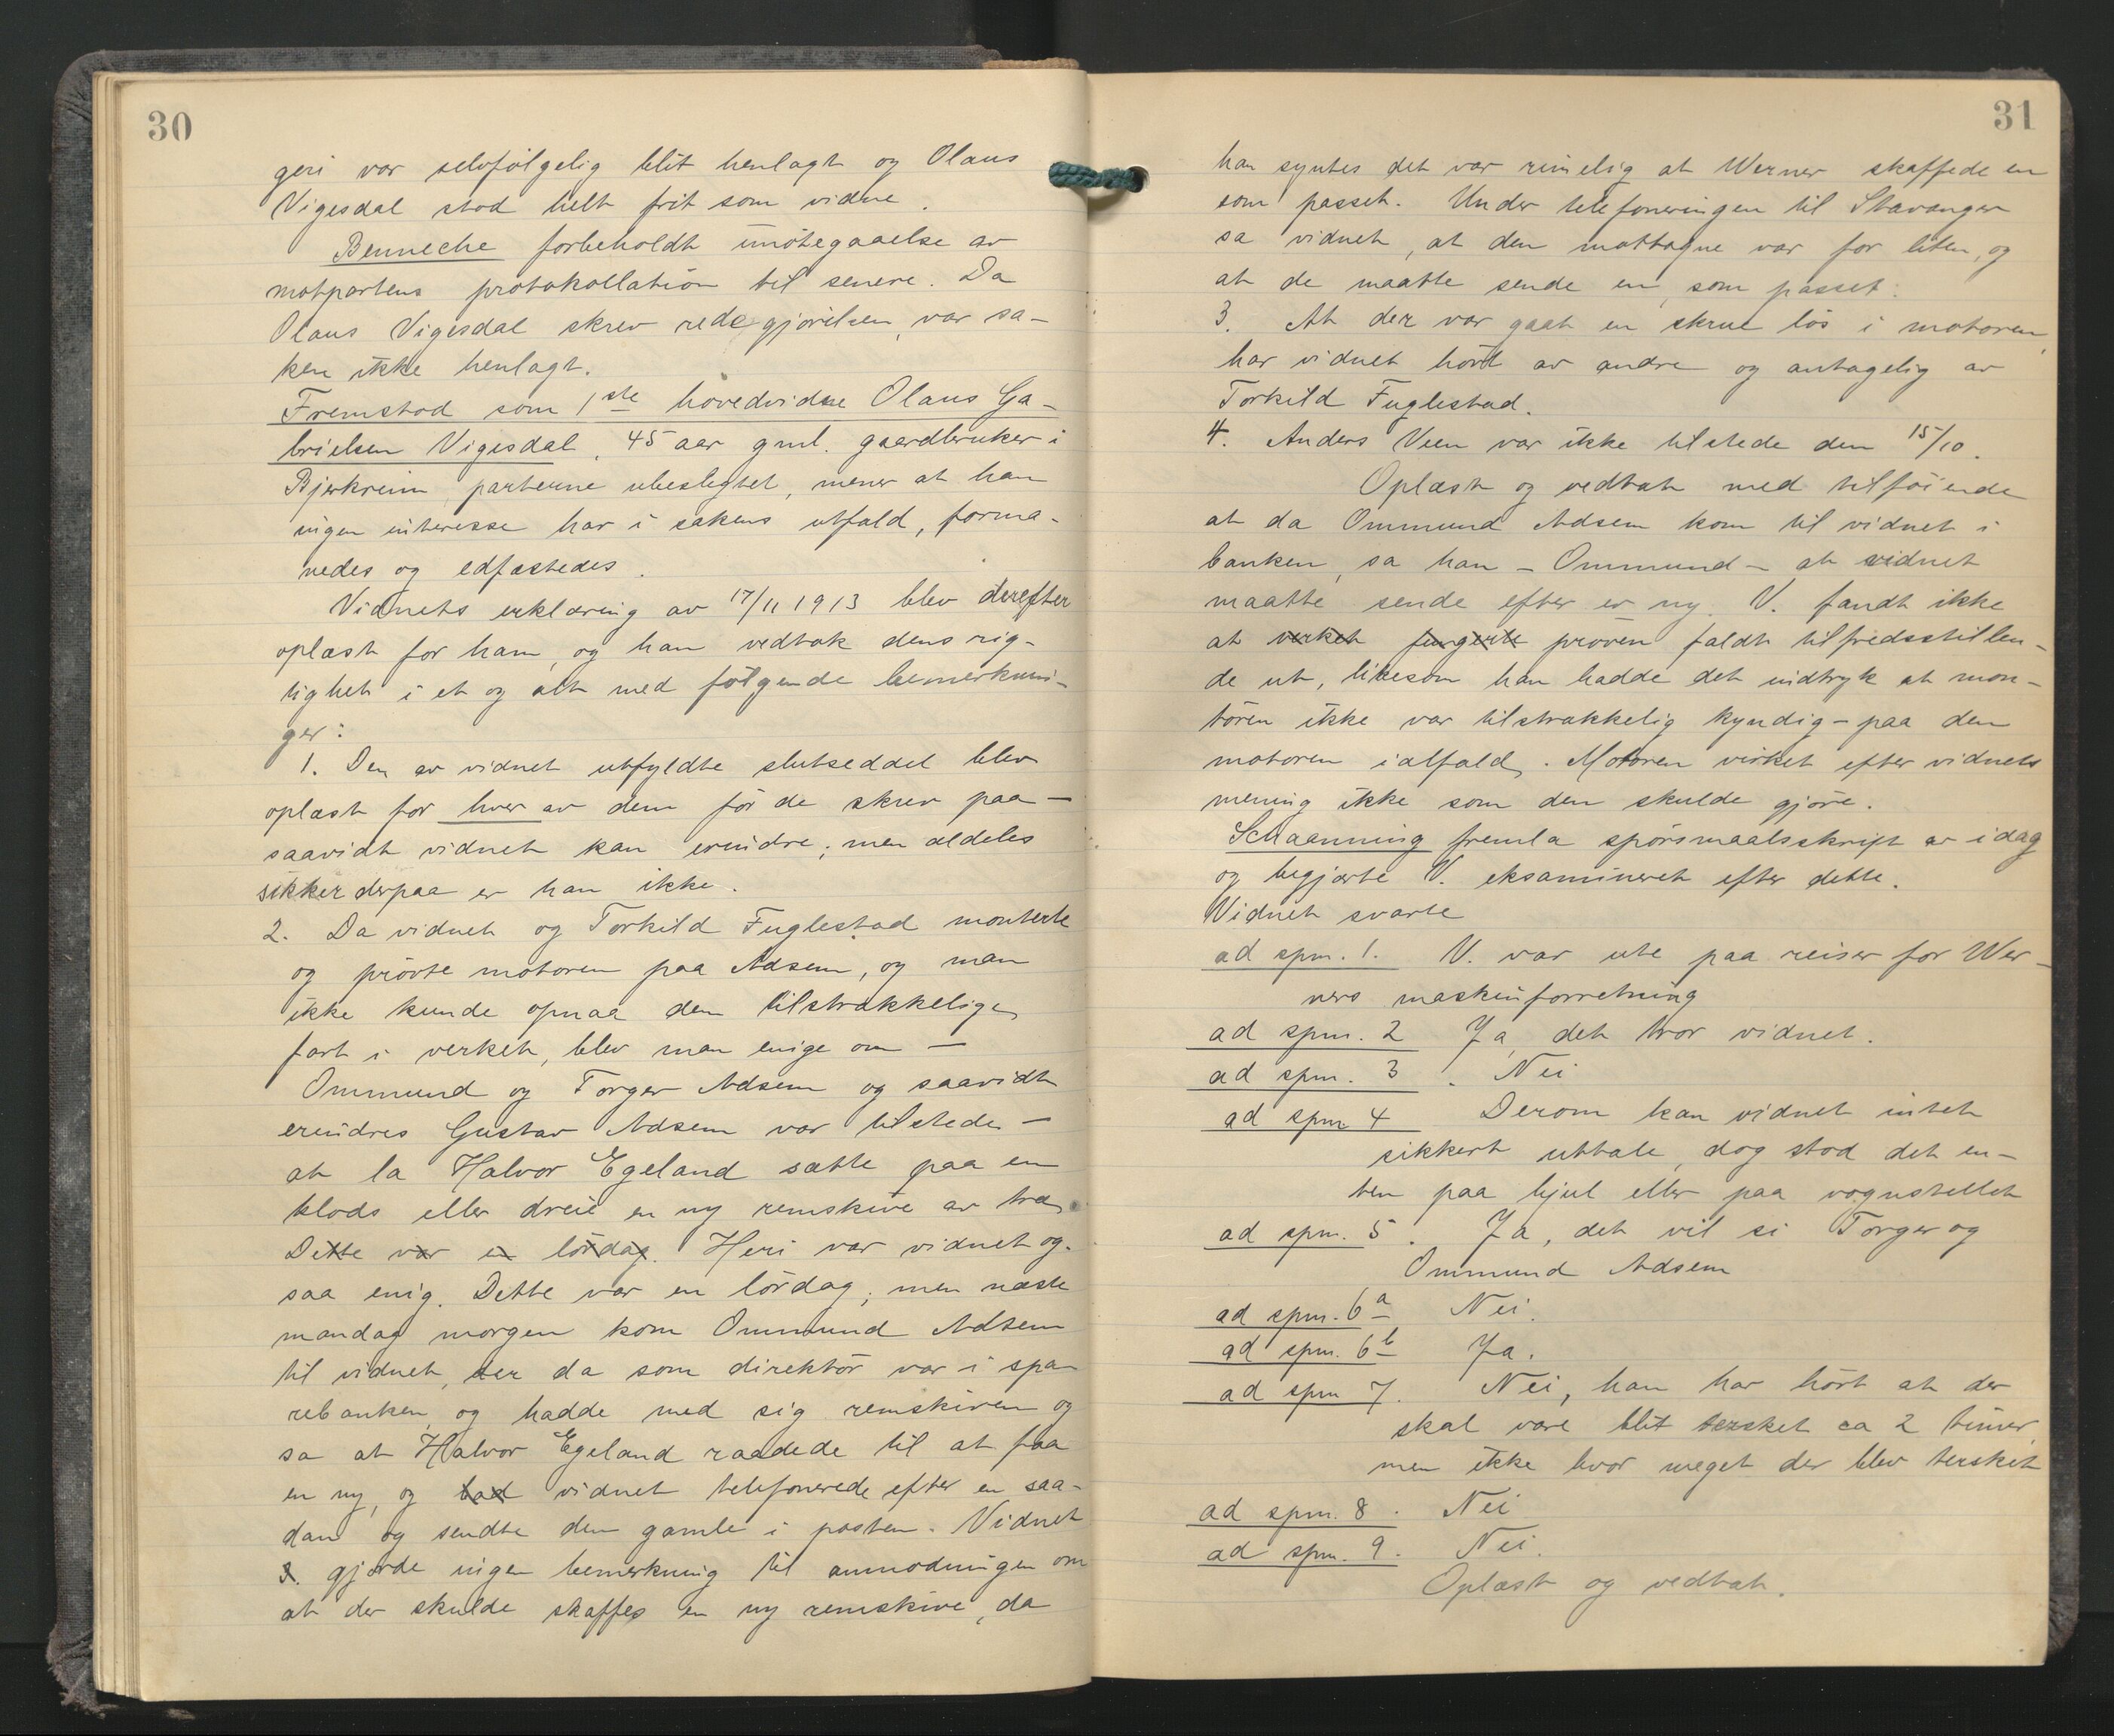 30
geri var selvfølgelig blit henlagt og Olaus
Vigesdal stod helt frit som vidne.
Benneche forbeholdt imøtegaaelse av
motpartens protokollation til senere. Da
Olaus Vigesdal skrev redegjørelsen, var sa-
ken ikke henlagt.
Fremstod som 1ste hovedvidne Olaus Ga-
brielsen Vigesdal, 45 aar gml. gaardbruker i
Bjerkreim, parterne ubeslegtet, mener at han
ingen interesse har i sakens utfald, forma-
nedes og edfæstedes.
Vidnets erklæring av 17/11 1913 blev derefter
oplæst for ham, og han vedtok dens rig-
tighet i et og alt med følgende bemerknin-
ger:
1. Den av vidnet utfyldte slutseddel blev
oplæst for hver av dem før de skrev paa —
saavidt vidnet kan erindre; men aldeles
sikker derpaa er han ikke.
2. Da vidnet og Torkild Fuglestad monterte
og prøvte motoren paa Adsem, og man
ikke kunde opnaa den tilstrækkelige
fart i verket, blev man enige om —
Ommund og Torger Adsem og saavidt
erindres Gustav Adsem var tilstede —
at la Halvor Egeland sætte paa en
klods eller dreie en ny remskive av træ,
Dette var en lørdag. Heri var vidnet og-
saa enig. Dette var en lørdag; men næste
mandag morgen kom Ommund Adsem
til vidnet, der da som direktør var i spa-
rebanken, og hadde med sig remskiven og
sa at Halvor Egeland raadede til at faa
en ny, og bad vidnet telefonerede efter en saa-
dan og sendte den gamle i posten. Vidnet
3. gjorde ingen bemerkning til anmodningen om
at der skulde skaffes en ny remskive, da
31
han syntes det var rimelig at Werner skaffede en
som passet. Under telefoneringen til Stavanger
sa vidnet, at den mottagne var for liten, og
at de maatte sende en, som passet.
3. At der var gaat en skrue løs i motoren,
har vidnet hørt av andre og antagelig av
Torkild Fuglestad.
4. Anders Veen var ikke tilstede den 15/10.
Oplæst og vedtat med tilføiende
at da Ommund Adsem kom til vidnet i
banken, sa han - Ommund - at vidnet
maatte sende efter en ny. V. fandt ikke
at verket fungerte prøven faldt tilfredsstillen-
de ut, likesom han hadde det indtryk at mon-
tøren ikke var tilstrækkelig kyndig - paa den
motoren ialfald. Motoren virket efter vidnets
mening ikke som den skulde gjøre.
Schaanning fremla spørsmaalsskrift av idag
og begjærte V. eksamineret efter dette.
Vidnet svarte
ad spm. 1. V. var ute paa reiser for Wer-
ners maskinforretning
ad spm. 2 Ja, det tror vidnet.
ad spm. 3. Nei
ad spm 4 Derom kan vidnet intet
sikkert uttale, dog stod det en-
ten paa hjul eller paa vognstellet
ad spm. 5. Ja, det vil si Torger og
Ommund Adsem
ad spm. 6a Nei.
ad spm. 6b Ja.
ad spm 7. Nei, han har hørt at der
skal være blit tersket ca 2 timer,
men ikke hvor meget der blev tersket
ad spm. 8. Nei
ad spm. 9. Nei.
Oplæst og vedtat.